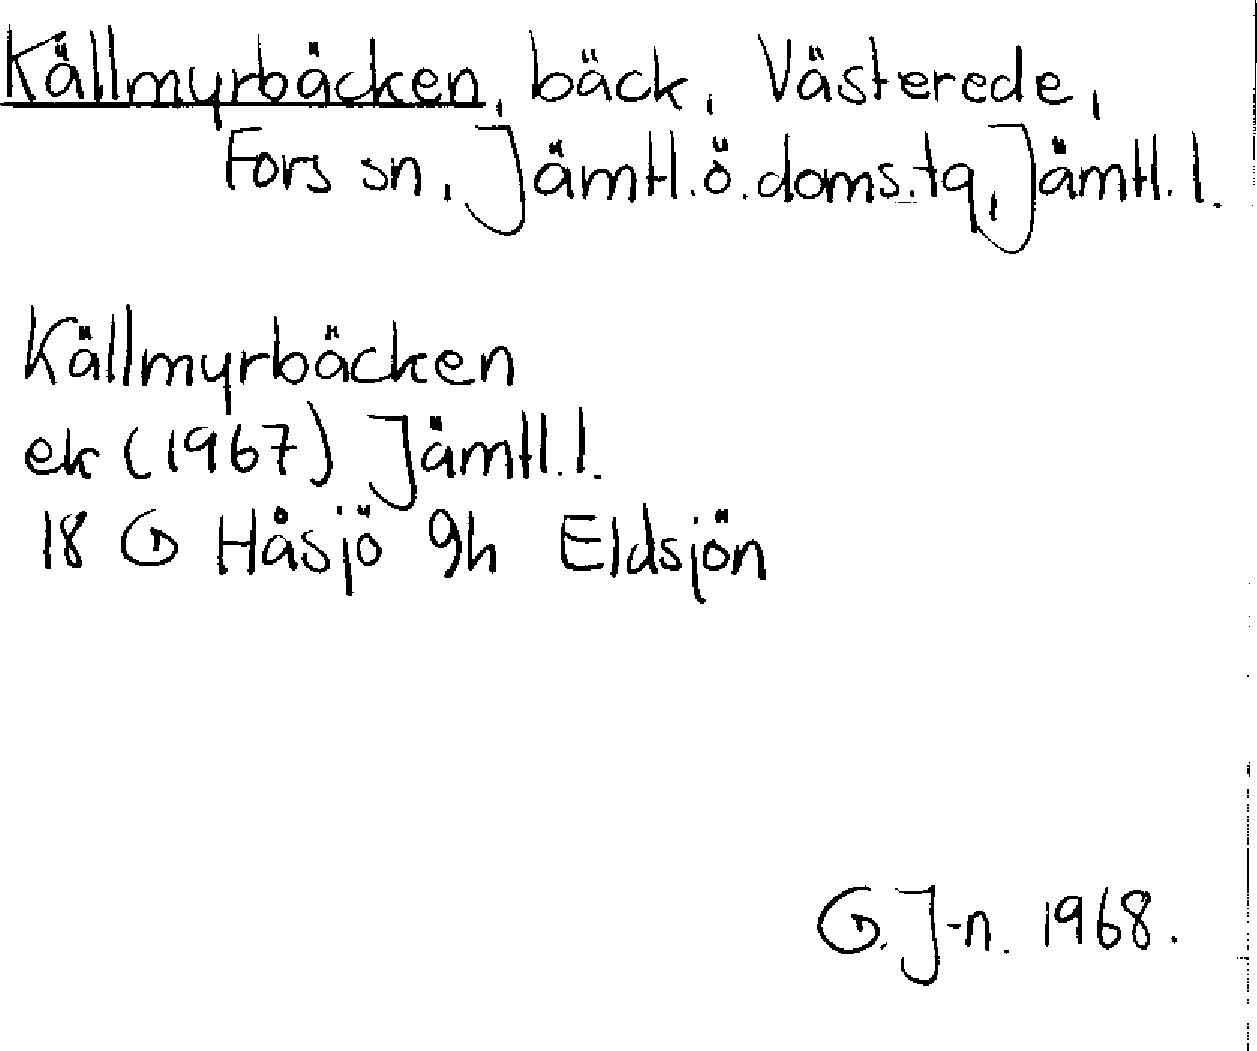 Källmyrbäcken, bäck, Västerede,
Fors sn, Jämtl.ö.doms.tg, Jämtl.l.
Källmyrbäcken
ek (1967) Jämtl.l.
18 G Håsjö 9h Eldsjön
G. J-n. 1968.